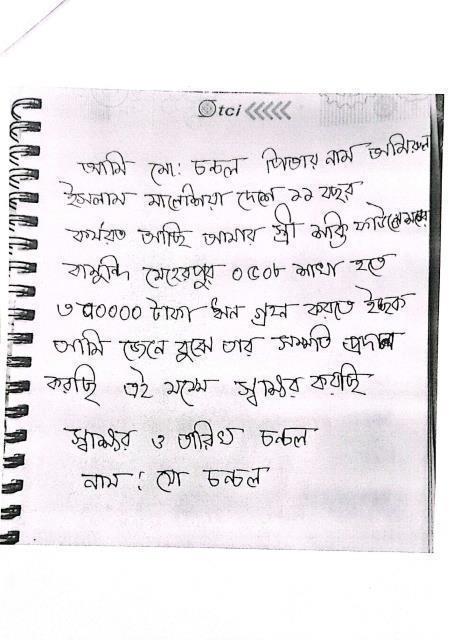 tci
আমি মো: চন্চল পিতার নাম আমিরুল
ইসলাম মালেশিয়া দেশে ১১ বছর
কর্মরত আছি আমার স্ত্রী শক্তি ফাউন্ডেশনের
বামুন্দি মেহেরপুর ০৫০৮ শাখা হতে
৩৭০০০০ টাকা ঋন গ্রহন করতে ইচ্ছুক
আমি জেনে বুঝে তার সম্মতি প্রদান
করছি এই মর্মে স্বাক্ষর করছি
স্বাক্ষর ও তারিখ চন্চল
নাম : মো চন্চল